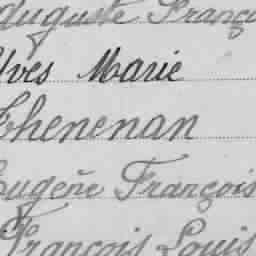 Auguste Franço
Yves Marie
Thenenan
Eugène François
François Louis